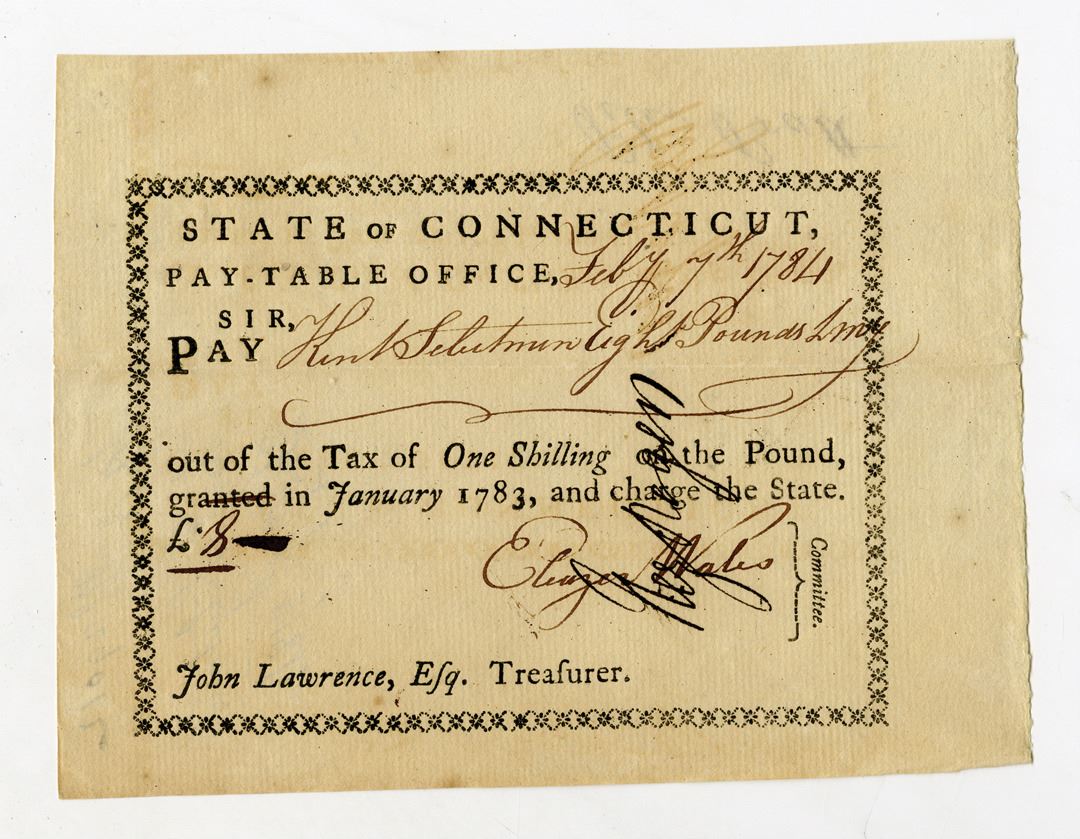 STATE OF CONNECTICUT,
PAY-TABLE OFFICE, Feby 7th 1784
SIR,
PAY Kent Selectmen Eight Pounds Lmy
out of the Tax of One Shilling on the Pound,
granted in January 1783, and charge the State.
£.8
Eleazer Wales
Committee.
John Lawrence, Eſq. Treaſurer.